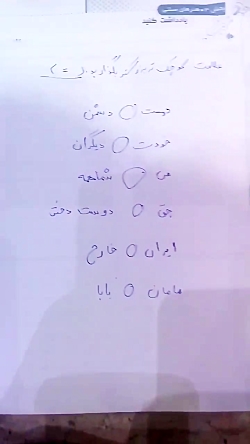 یادداشت کنید
علامت کوچک تر و بزرگتر بگذارید ( = )
دوست ○ دشمن
خودت ○ دیگران
من ○ شما همه
حق ○ دوست دختر
ایران ○ خارج
مامان ○ بابا